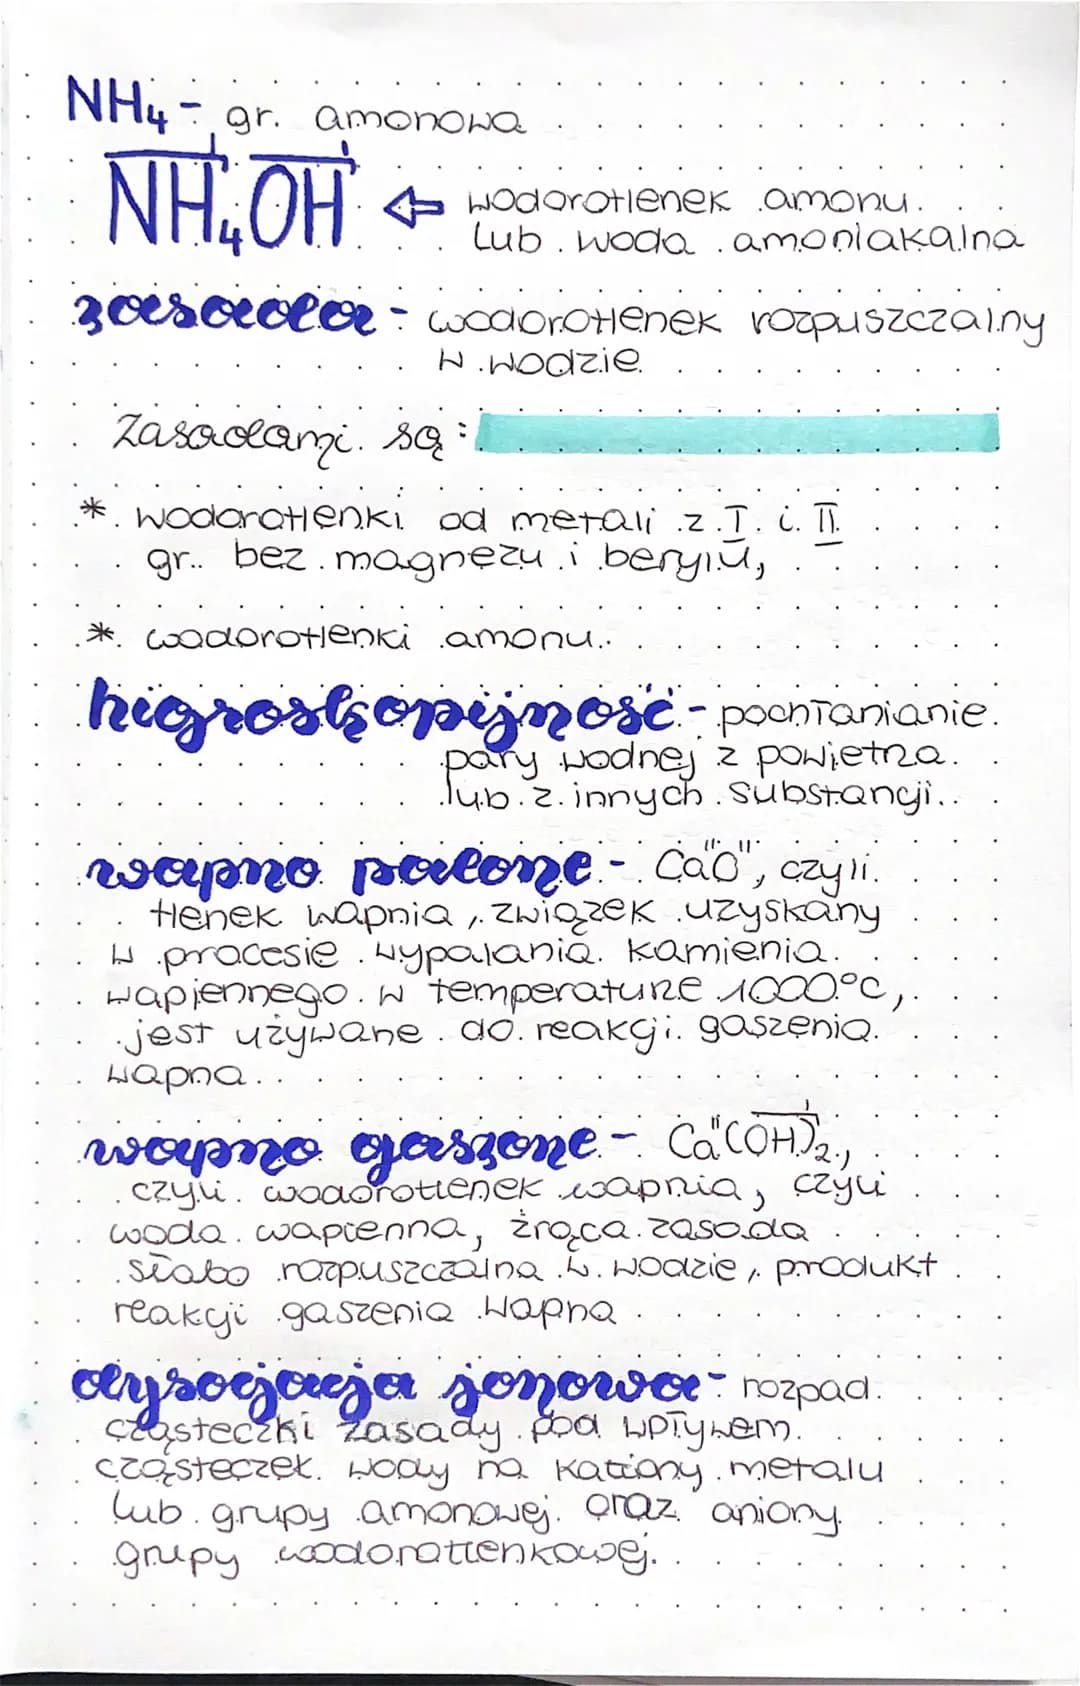 NH₄ - gr. amonowa
NH₄OH ⇦ wodorotlenek amonu
lub woda amoniakalna
zasada - wodorotlenek rozpuszczalny
w wodzie
Zasadami są:
* wodorotlenki od metali z I i II
gr. bez magnezu i berylu,
* wodorotlenki amonu.
higroskopijność - pochłanianie
pary wodnej z powietrza
lub z innych substancji.
wapno palone - CaᴵᴵOᴵᴵ, czyli
tlenek wapnia, związek uzyskany
w procesie wypalania kamienia
wapiennego w temperaturze 1000°C,
jest używane do reakcji gaszenia
wapna.
wapno gaszone - Caᴵᴵ(OH)ᴵ₂,
czyli wodorotlenek wapnia, czyli
woda wapienna, żrąca zasada
słabo rozpuszczalna w wodzie, produkt
reakcji gaszenia wapna
dysocjacja jonowa - rozpad
cząsteczki zasady pod wpływem
cząsteczek wody na kationy metalu
lub grupy amonowej oraz aniony
grupy wodorotlenkowej.